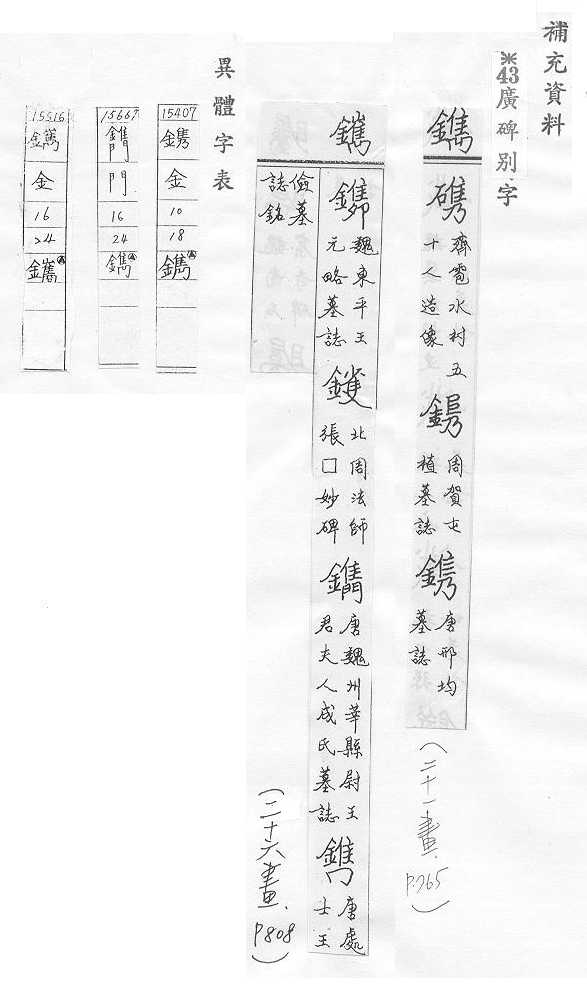 補充資料
※43廣碑別字
鐫
齊雹水村五
十人造像
周賀屯
植墓誌
鎸
唐邢均
墓誌
(二十一畫.P.765)
魏東平王
元略墓誌
北周法師
張□妙碑
唐魏州華縣尉王
君夫人成氏墓誌
唐處
士王
儉墓
誌銘
(二十六畫.P808)
異體字表
15407
鎸
金
10
18
鐫
15667
門
16
24
鐫
15516
金
16
24